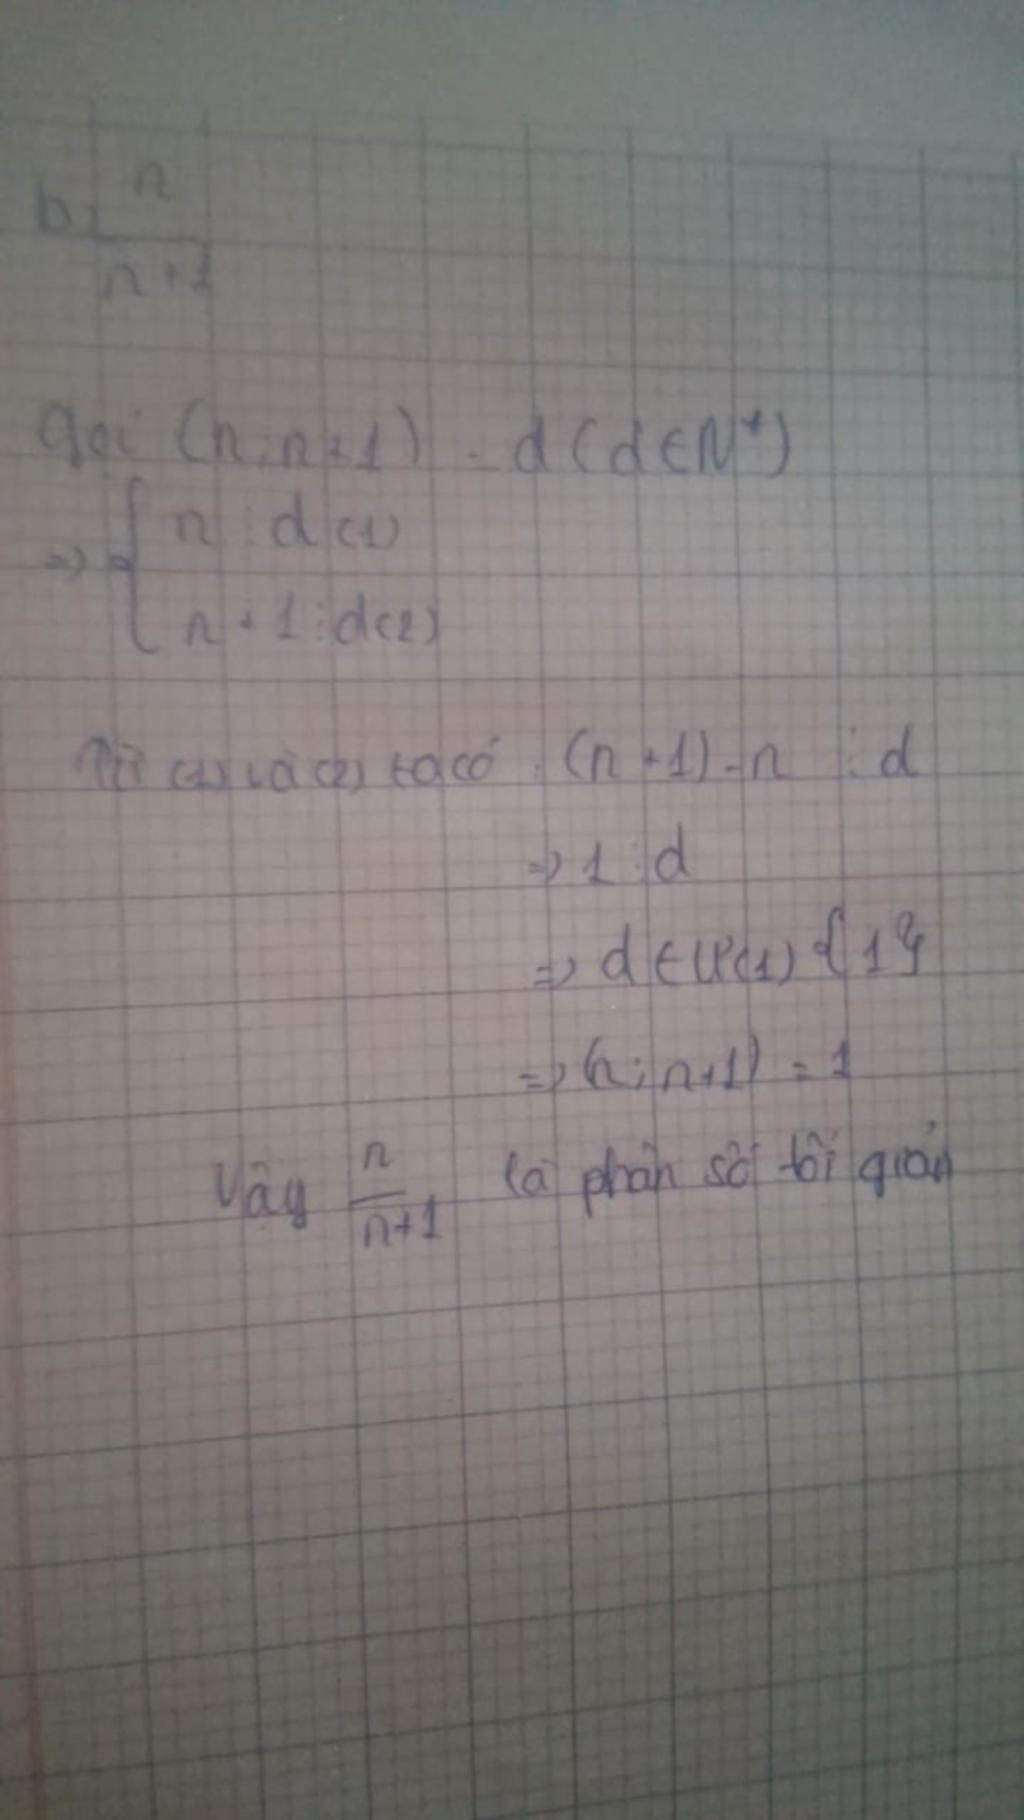 b, n
n+1
Gọi (n; n+1) = d (d ∈ N*)
=> { n ⋮ d (1)
n + 1 ⋮ d (2)
Từ (1) và (2) ta có: (n+1) - n ⋮ d
=> 1 ⋮ d
=> d ∈ Ư(1) {1}
=> (n; n+1) = 1
Vậy n/n+1 là phân số tối giản